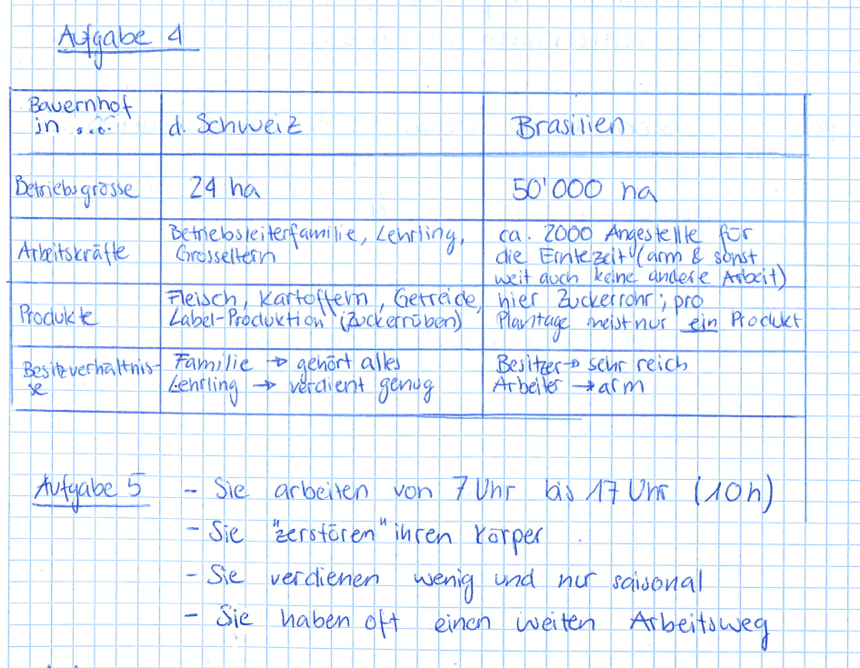 Aufgabe 4
Bauernhof in .... d. Schweiz Brasilien
Betriebsgrösse 24 ha 50'000 ha
Arbeitskräfte Betriebsleiterfamilie, Lehrling, Grosseltern ca. 2000 Angestellte für die Erntezeit (arm & sonst weit auch keine andere Arbeit)
Produkte Fleisch, Kartoffeln, Getreide, Label-Produktion (Zuckerrüben) hier Zuckerrohr; pro Plantage meist nur ein Produkt
Besitzverhältnis-se Familie → gehört alles Lehrling → verdient genug Besitzer → sehr reich Arbeiter → arm
Aufgabe 5 - Sie arbeiten von 7 Uhr bis 17 Uhr (10h)
- Sie "zerstören" ihren Körper.
- Sie verdienen wenig und nur saisonal
- Sie haben oft einen weiten Arbeitsweg